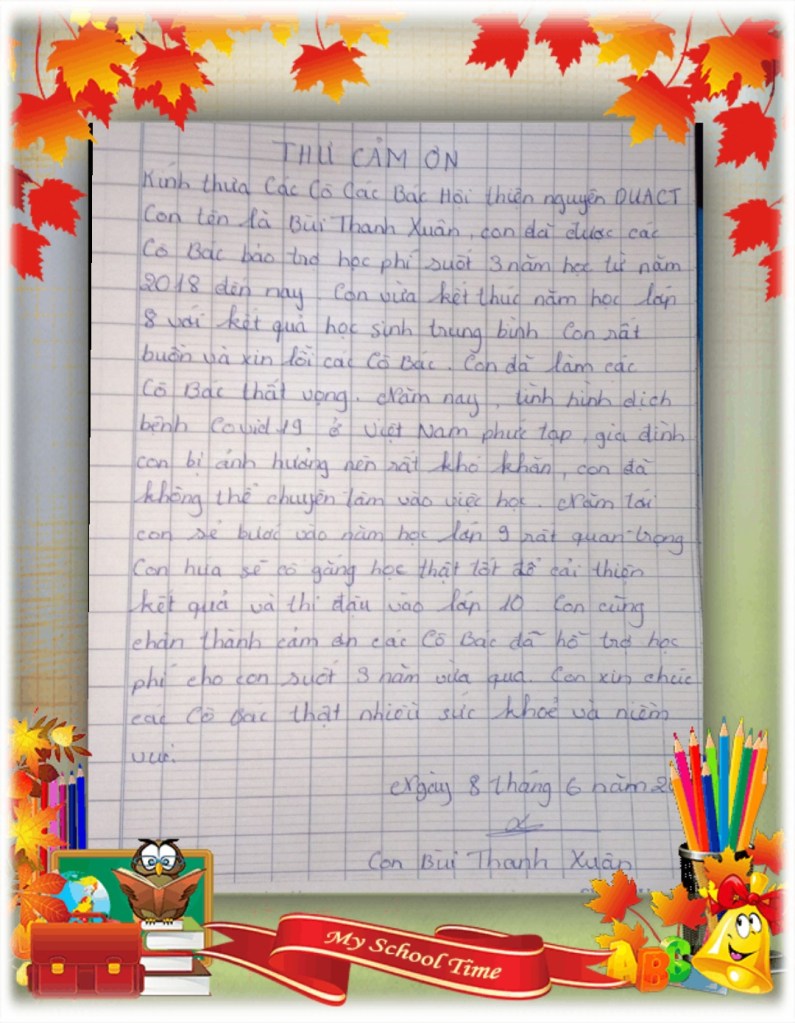 THƯ CẢM ƠN
Kính thưa Các Cô Các Bác Hội thiện nguyện DUACT
Con tên là Bùi Thanh Xuân, con đã được các
Cô Bác bảo trợ học phí suốt 3 năm học từ năm
2018 đến nay. Con vừa kết thúc năm học lớp
8 với kết quả học sinh trung bình Con rất
buồn và xin lỗi các Cô Bác. Con đã làm các
Cô Bác thất vọng. Năm nay, tình hình dịch
bệnh Covid 19 ở Việt Nam phức tạp, gia đình
con bị ảnh hưởng nên rất khó khăn, con đã
không thể chuyên tâm vào việc học. Năm tới
con sẽ bước vào năm học lớp 9 rất quan trọng
Con hứa sẽ cố gắng học thật tốt để cải thiện
kết quả và thi đậu vào lớp 10. Con cũng
chân thành cảm ơn các Cô Bác đã hỗ trợ học
phí cho con suốt 3 năm vừa qua. Con xin chúc
các Cô Bác thật nhiều sức khoẻ và niềm
vui.
Ngày 8 tháng 6 năm 2
Con Bùi Thanh Xuân
My School Time
ABC